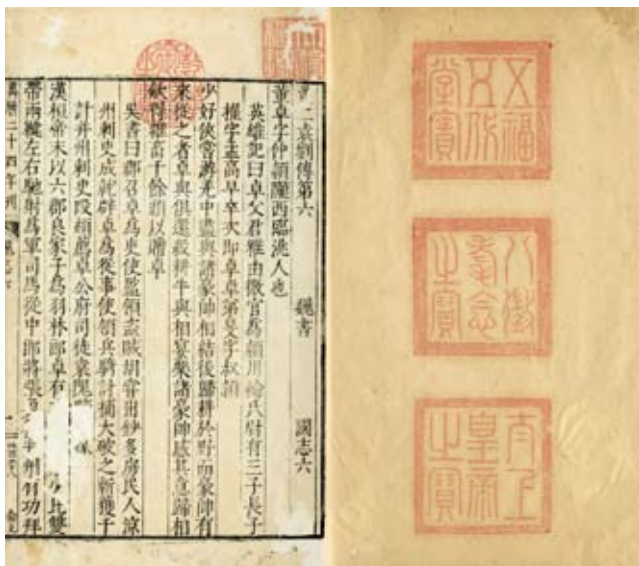 五福五代堂寶
八徵耄念之寶
太上皇帝之寶
二袁劉傳第六 魏書 國志六
董卓字仲頴隴西臨洮人也
英雄記曰卓父君雅由微官爲頴川綸氏尉有三子長子
擢字孟高早卒次即卓卓弟旻字叔頴
少好俠嘗游羌中盡與諸豪帥相結後歸耕於野而豪帥有
來從之者卓與俱還殺耕牛與相宴樂諸豪帥感其意歸相
斂得雜畜千餘頭以贈卓
吳書曰郡召卓爲吏使監領盜賊胡嘗出鈔多虜民人涼
州刺史成就辟卓爲從事使領兵騎討捕大破之斬獲千
計并州刺史段熲薦卓公府司徒袁隗
漢桓帝末以六郡良家子爲羽林郎卓有 少比雙
帶兩鞬左右馳射爲軍司馬從中郎將張 州有功拜
萬曆二十四年刊